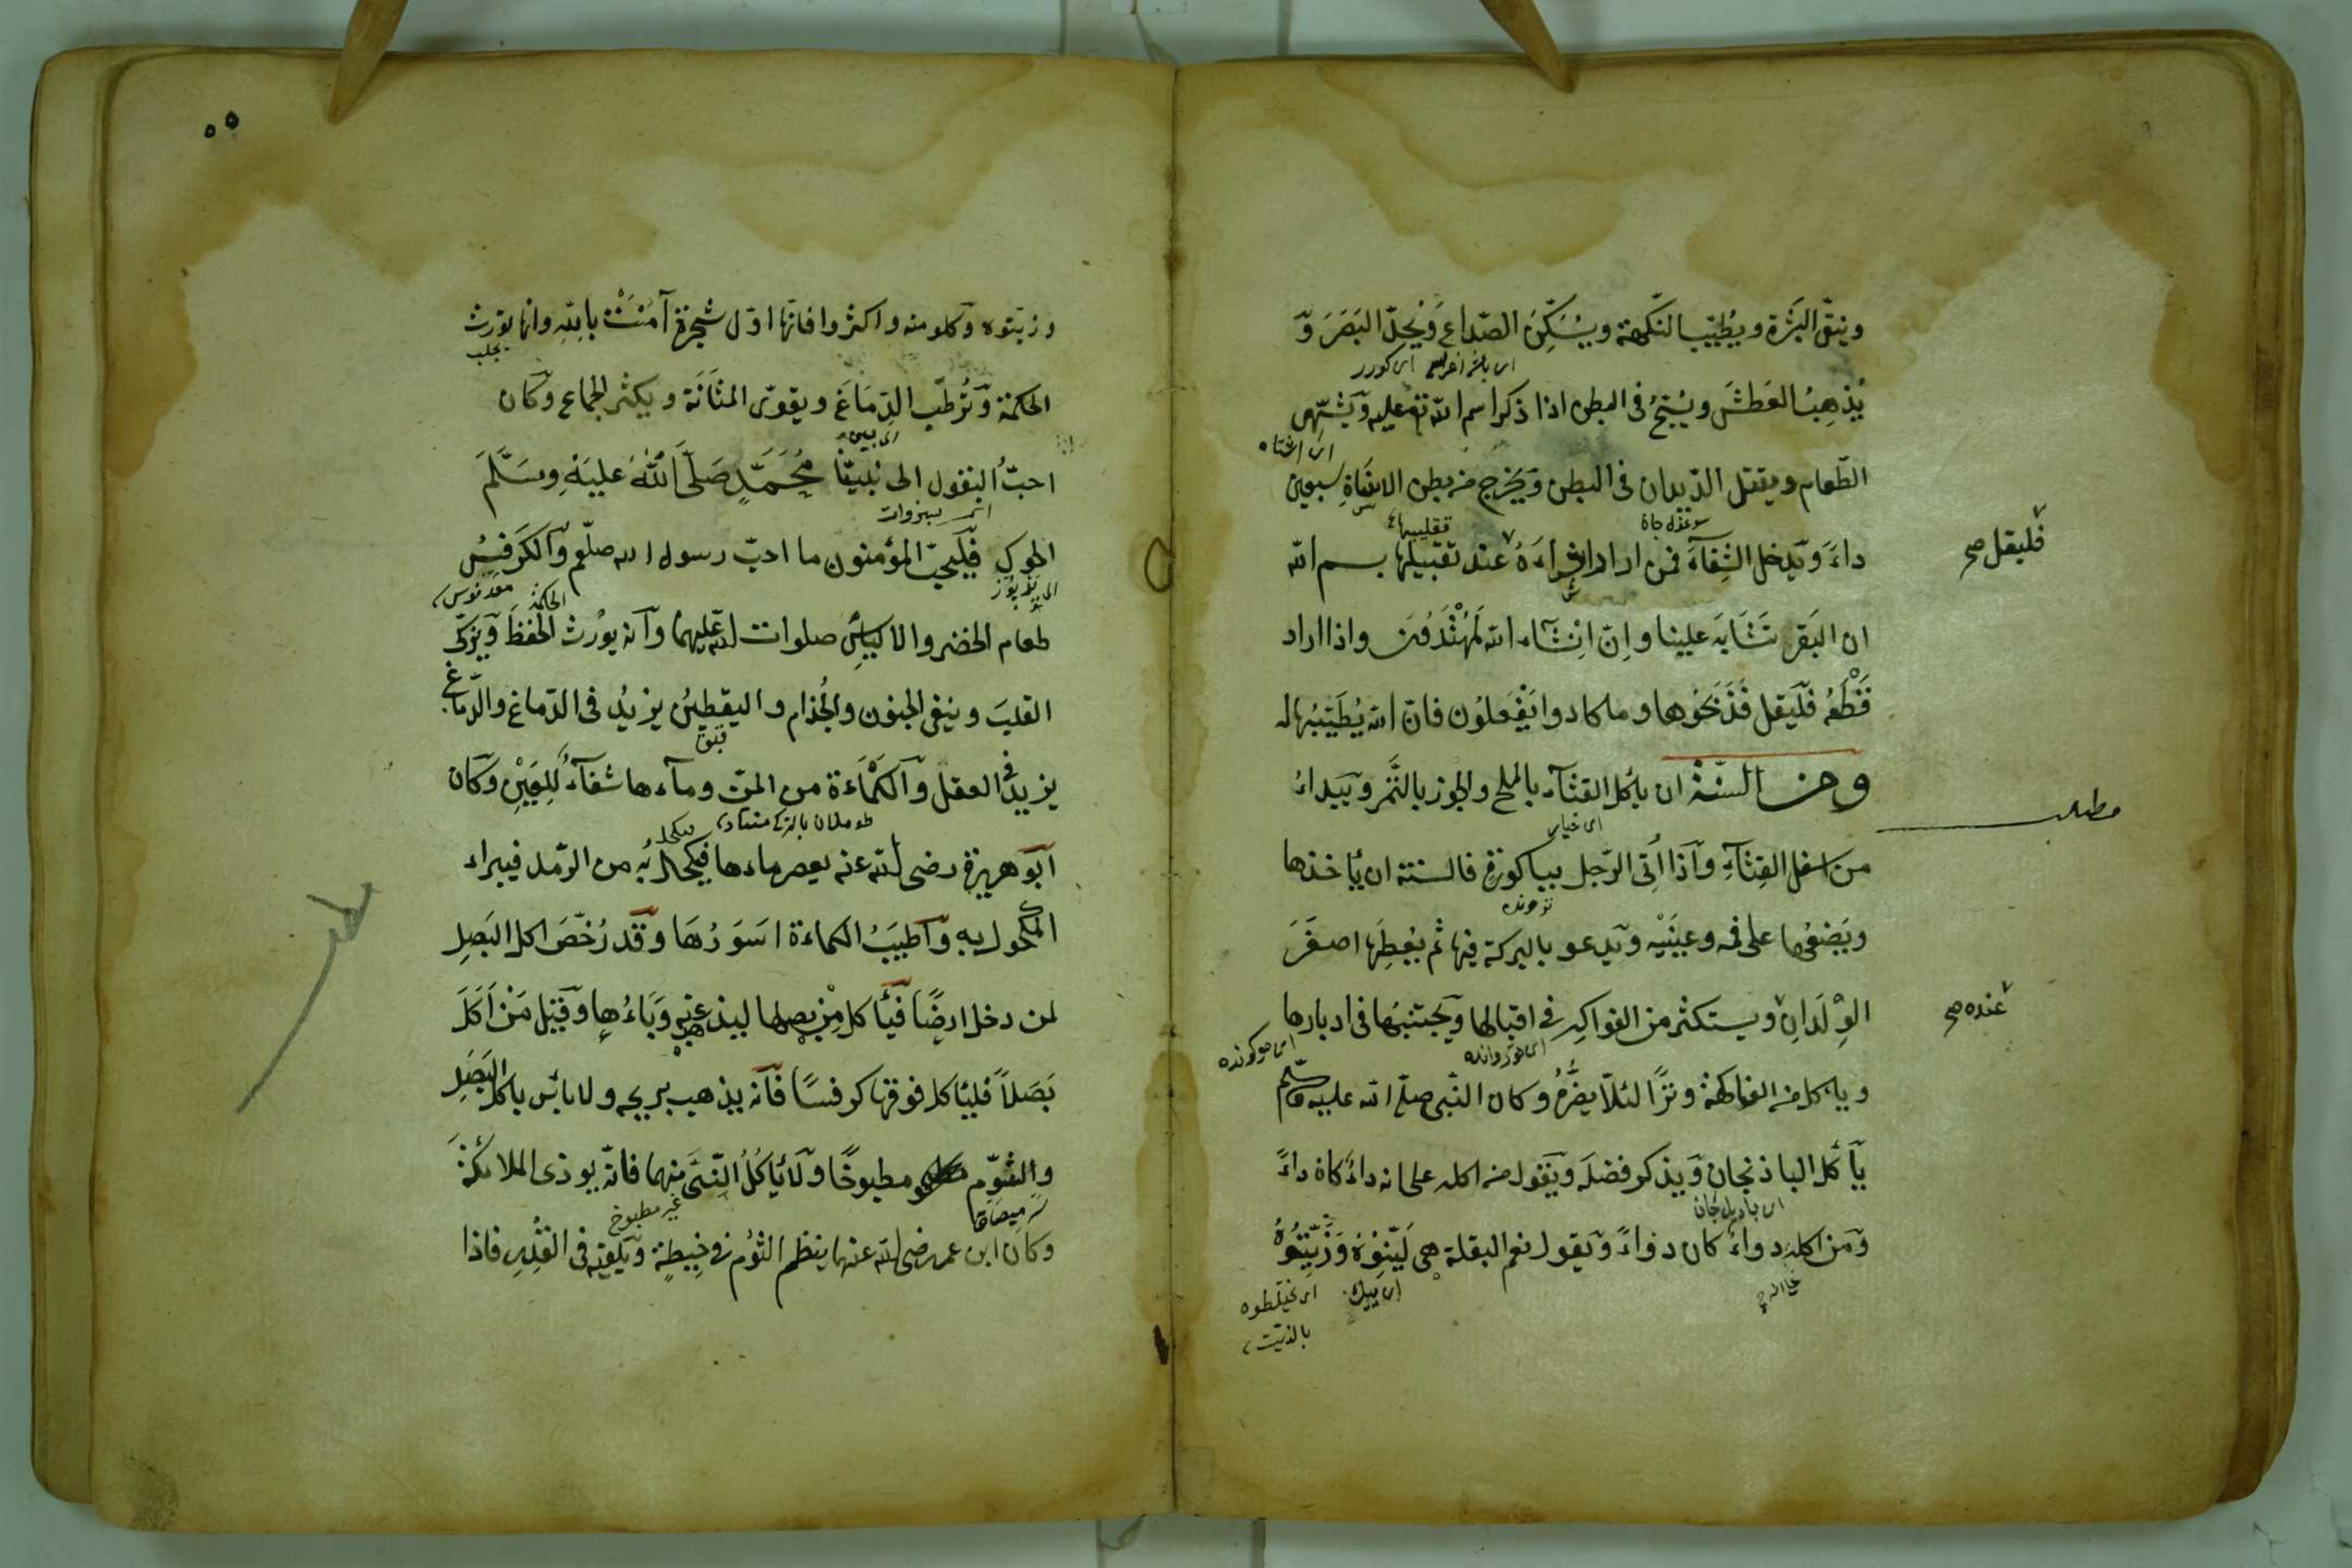 وينقّى البَشَرة ويُطَيّب النّكهة ويُسَكّن الصّداعَ ويُحِدّ البَصَرَ وَ
يُذهِبُ العَطشَ ويُسَبّح فى البطن اذا ذكر اسم الله تع عليه وَيُشَهّى
اى اشتاه
الطّعام ويقتل الدّيدان فى البطن وَيُخرج من بطن سبعين
فليقل صح
داءً ويَدخل الشِّفَآءَ فمن اراد شراءَهُ عند تقبيلها بسم الله
ان البَقر تَشَابَهَ علينا وإنّ اِنْشَآء الله لَمُهْتَدُونَ واذا اراد
قَطْعَهُ فَلْيَقل فَذَبَحُوها وما كادوا يَفْعَلُون فانّ الله يُطَيّبُهَا له
مطلب
ومن السنّة ان يأكل القثآء بالملح والجوز بالتَّمْر ويَبداءُ
اى خيار
من اسفل القِثّآءِ وَاذَا اُتِى الرّجل بباكورةٍ فالسنة ان يأخذها
ويَضعُها على فمه وعينَيْه ويَدعو بالبركة فيها ثم يُعطِيَها اصغَرَ
عنده صح
الوِلْدَانِ ويستكثر من الفواكه فى اقبالها ويَجتنبُها فى ادبارها
ويأكل من الفاكهة وترًا لئلّا يضُرَّهُ وكان النّبى صلّى الله عليه وسلّم
يأكل الباذنجان وَيذكر فضلَه ويَقول من اكله على انه داءٌ كان داءً
اى بادلجان
وَمن اكله دواءً كان دواءً وَيقول نعم البقلة هى لَيّنُوْهُ وَزَيّتُوْهُ
اى يخلطوه
بالزيت
٥٥
وزيّتوه وَكلو منه واكثروا فانّها اوّل شجرة آمَنَتْ بالله وانها تورث
يجلب
الحكمة وَتُرطّب الدّمَاغَ ويقوّى المثَانَة ويكثر الجماع وَكان
احبُّ البقول الى نَبيّنَا مُحَمَّدٍ صَلَّى اللهُ عَليَهِ وسَلَّمَ
فَليُحبّ المؤمنون ما احبّ رسول الله صلّعم وَالكَرَفسُ
معدنوس
طعام الخضر والالياس صلوات الله عليهما وَانه يُورث الحفْظَ وَيُزكّى
القلبَ وينفى الجنون والجُذام واليقطينُ يزيدُ فى الدّماغ والدّماغ
يزيد فى العقل وَالكَمْأَءة من المنّ وماءها شفَآءٌ لِلعَيْنِ وَكان
اَبو هريرة رضى الله عنه يعصر ماءها فيكحل به من الرّمد فيبراء
المكحول به وَاَطيَبُ الكماءة اسَوَدُهَا وَقَد رُخّصَ اكل البَصلِ
لمن دخل ارضًا فَيَأكل مِنْ بصلها ليذهب عنه وَبَاءُها وَقيل مَنْ اَكَلَ
بَصَلاً فليأكل فوقها كرفسًا فَانه يذهب بريحه ولا بأس باكل البَصَلِ
والثوم مطبوخًا وَلَا يَأكُلُ النّىَّ منهما فانّه يوذى الملائكةَ
غير مطبوخ
وكان ابن عمر رضى الله عنهما ينظم الثوْم فى خيطةٍ وَيلقيه فى القِدرِ فاذا